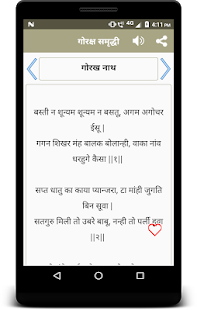 4G 4:11 PM
गोरक्ष समृद्धी
गोरख नाथ
बस्ती न शून्यम शून्यम न बसतू, अगम अगोचर
ईसू |
गगन शिखर मंह बालक बोलान्ही, वाका नांव
धरहुगे कैसा ||१||
सप्त धातु का काया प्यान्जरा, टा मांही जुगति
बिन सूवा |
सतगुरु मिली तो उबरे बाबू, नन्ही तो पर्ली हूवा
||२||